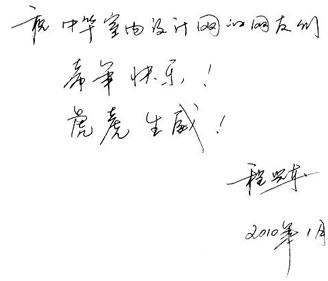 祝中华室内设计网的网友们
新年快乐!
虎虎生威!
2010年1月